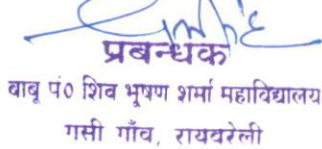 प्रबन्धक
बाबू पं० शिव भूषण शर्मा महाविद्यालय
गसी गाँव, रायबरेली